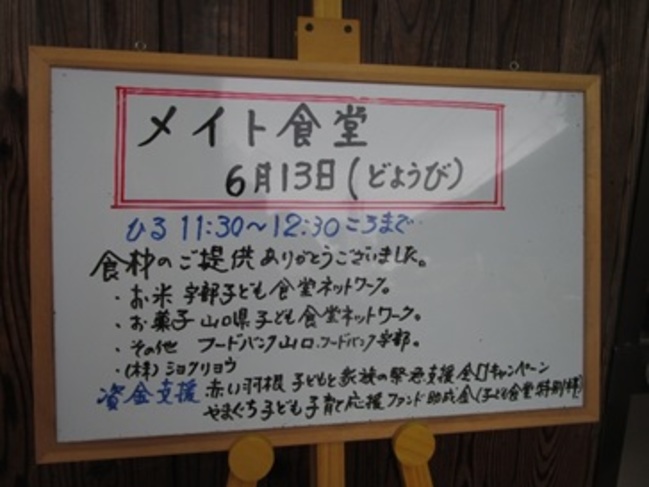 メイト食堂
6月13日(どようび)
ひる 11:30～12:30ころまで
食材のご提供ありがとうございました。
・お米 宇部子ども食堂ネットワーク。
・お菓子 山口県子ども食堂ネットワーク。
・その他 フードバンク山口、フードバンク宇部。
・(株)ショクリョウ
資金支援 赤い羽根 子どもと家族の緊急支援 全国キャンペーン
やまぐち子ども子育て応援ファンド助成金(子ども食堂特別枠)